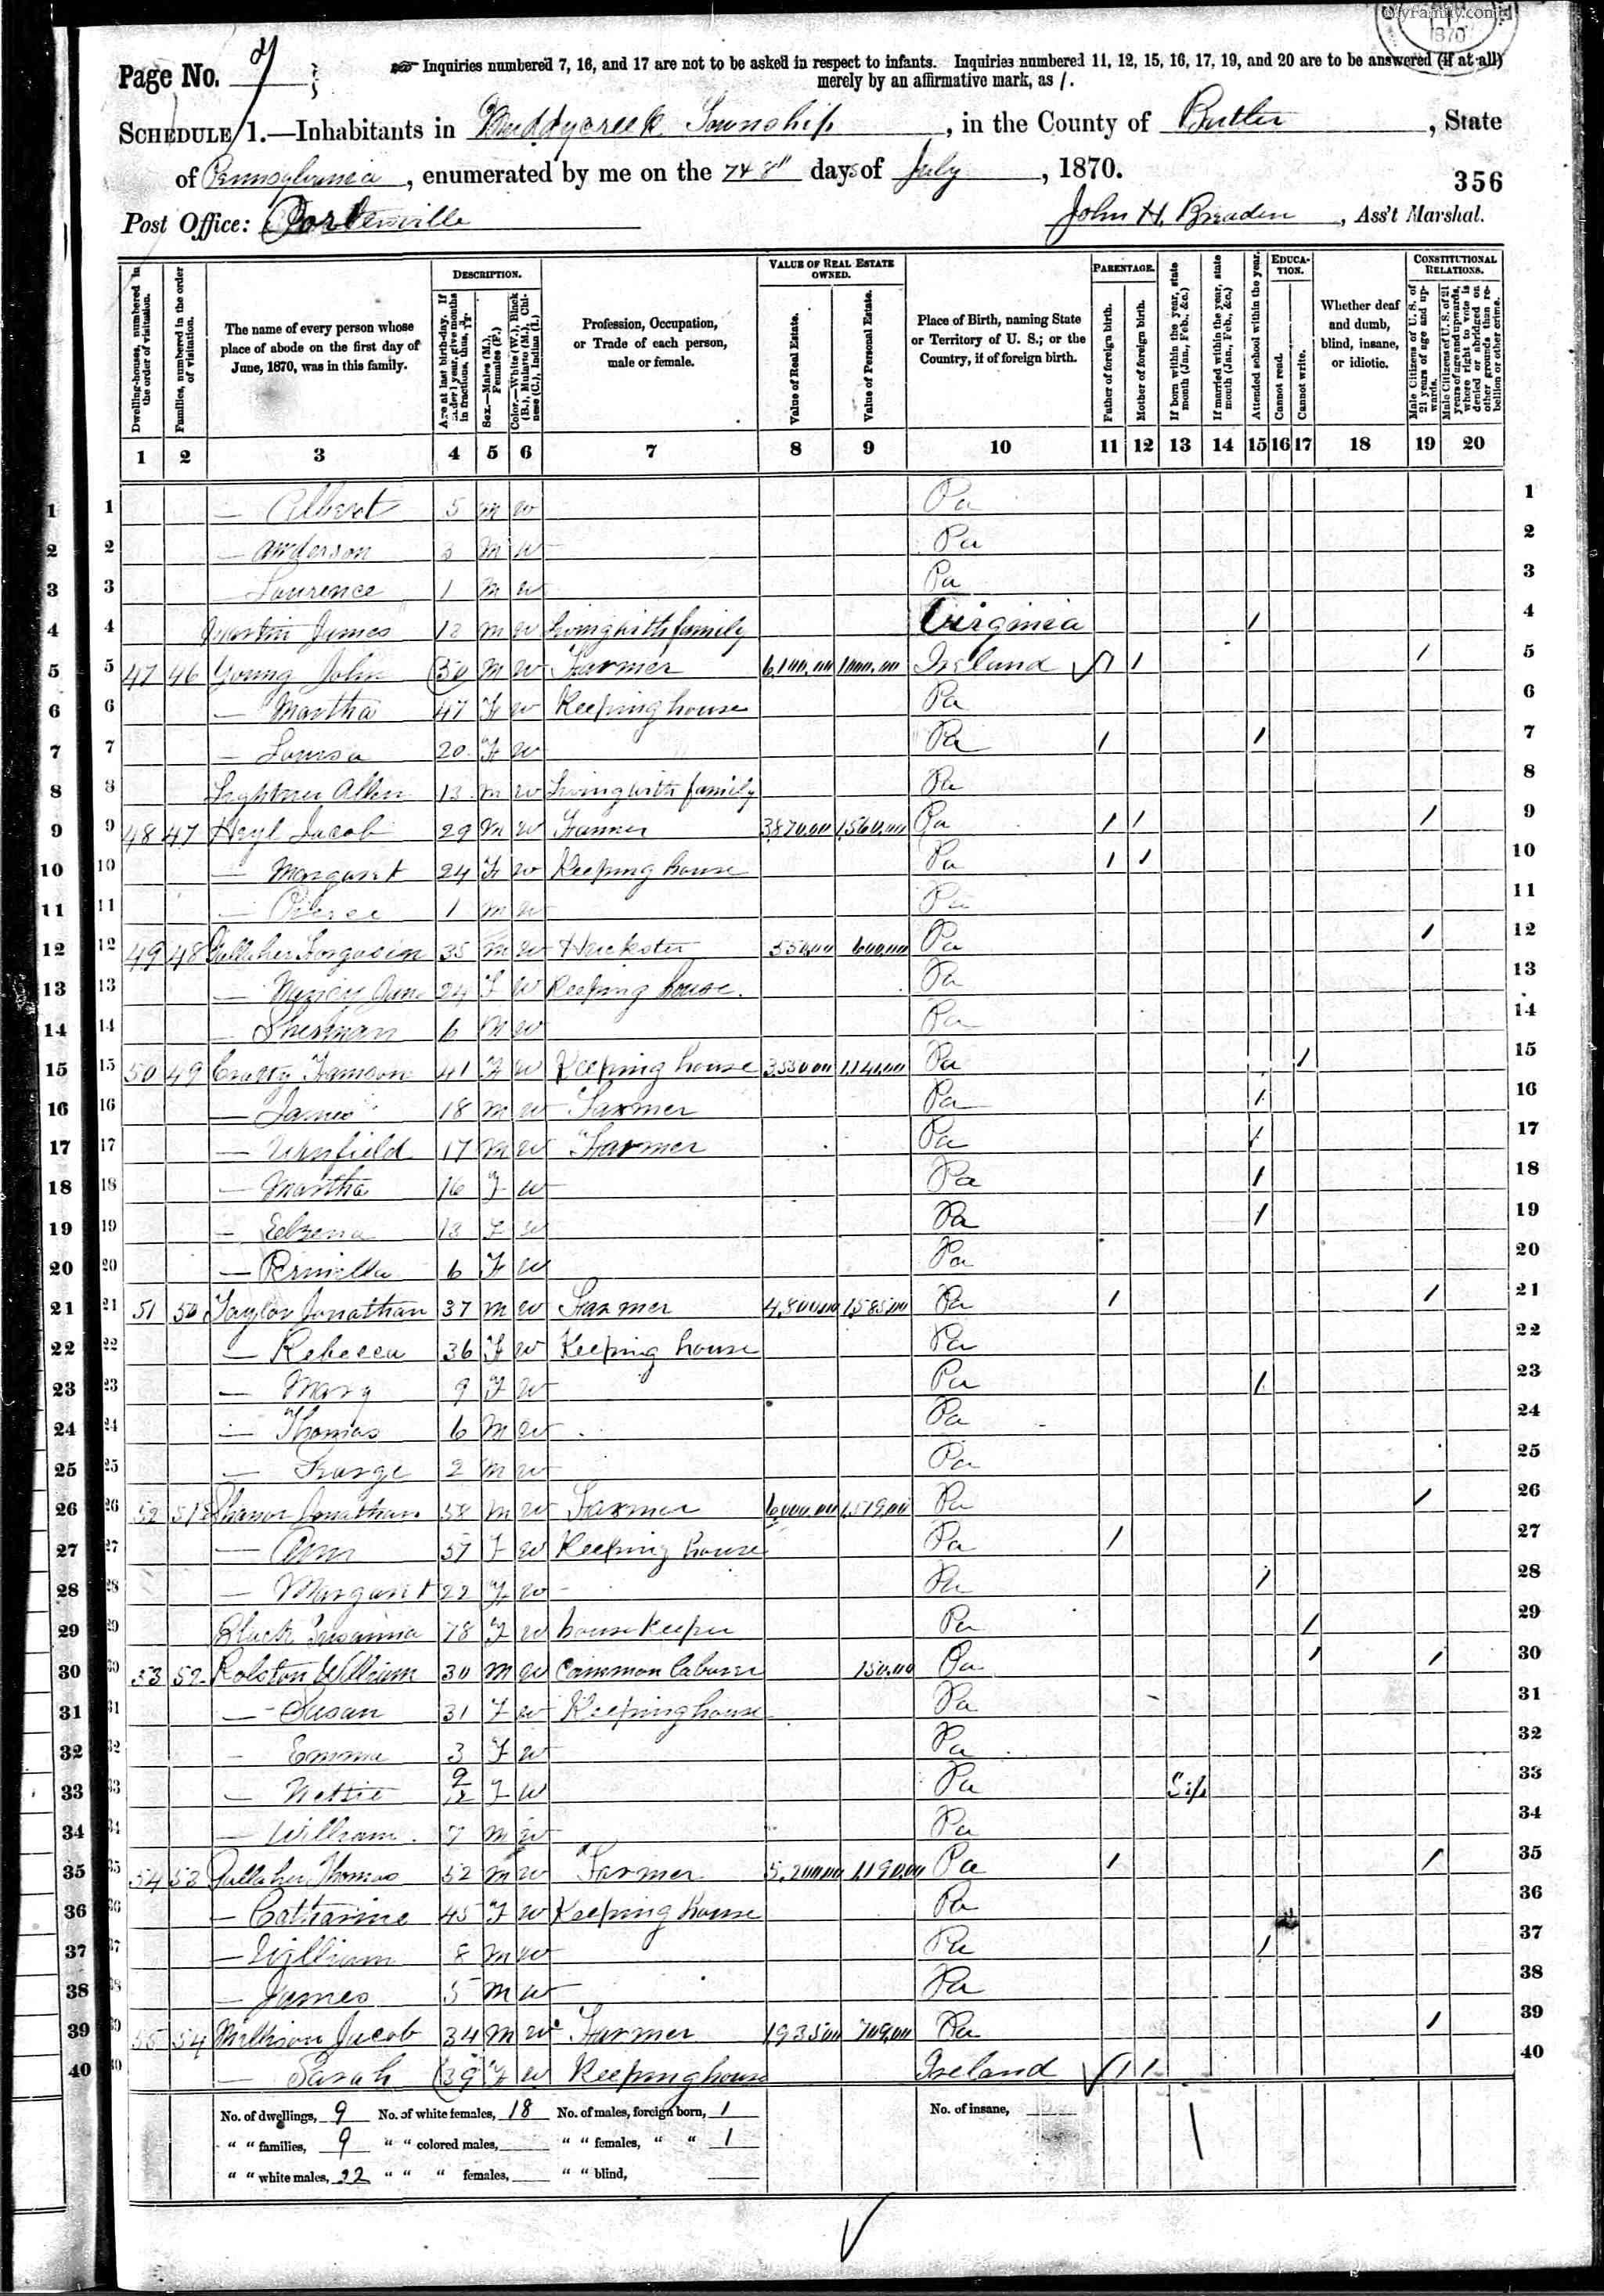 MyFamily.com
1870
Page No. 7
Inquiries numbered 7, 16, and 17 are not to be asked in respect to infants. Inquiries numbered 11, 12, 15, 16, 17, 19, and 20 are to be answered (if at all)
merely by an affirmative mark, as /.
SCHEDULE 1.—Inhabitants in Muddycreek Township, in the County of Butler, State
of Pennsylvania, enumerated by me on the 7 & 8" days of July, 1870.
356
Post Office: Portersville
John H. Breaden, Ass't Marshal.
Dwelling-houses, numbered in the order of visitation.
Families, numbered in the order of visitation.
The name of every person whose place of abode on the first day of June, 1870, was in this family.
DESCRIPTION.
Age at last birth-day. If under 1 year, give months in fractions, thus, 3/12.
Sex.—Males (M.), Females (F.)
Color.—White (W.), Black (B.), Mulatto (M.), Chinese (C.), Indian (I.)
Profession, Occupation, or Trade of each person, male or female.
VALUE OF REAL ESTATE OWNED.
Value of Real Estate.
Value of Personal Estate.
Place of Birth, naming State or Territory of U. S.; or the Country, if of foreign birth.
PARENTAGE.
Father of foreign birth.
Mother of foreign birth.
If born within the year, state month (Jan., Feb., &c.)
If married within the year, state month (Jan., Feb., &c.)
Attended school within the year.
EDUCATION.
Cannot read.
Cannot write.
Whether deaf and dumb, blind, insane, or idiotic.
CONSTITUTIONAL RELATIONS.
Male Citizens of U. S. of 21 years of age and upwards.
Male Citizens of U. S. of 21 years of age and upwards, where right to vote is denied or abridged on other grounds than rebellion or other crime.
1 2 3 4 5 6 7 8 9 10 11 12 13 14 15 16 17 18 19 20
1 — Albert 5 m w Pa 1
2 — Anderson 3 m w Pa 2
3 — Laurence 1 m w Pa 3
4 Martin James m w Living with family Virginia / 4
5 47 46 Young John 50 m w Farmer 6,100.00 1000.00 Ireland / / / 5
6 — Martha 47 F w Keeping house Pa 6
7 — Louisa 20 F w Pa / / 7
8 Lightner Allen 13 m w Living with family Pa 8
9 48 47 Heyl Jacob 29 m w Farmer 3870.00 1,560.00 Pa / / / 9
10 — Margaret 24 F w Keeping house Pa / / 10
11 — 1 m w Pa 11
12 49 48 Gallaher 35 m w Huckster 550.00 600.00 Pa / 12
13 — Nancy Jane 24 F w Keeping house. Pa 13
14 — Sherman 6 m w Pa 14
15 50 49 Cratty 41 F w Keeping house 3550.00 1140.00 Pa / 15
16 — James 18 m w Farmer Pa / 16
17 — Winfield 17 m w Farmer Pa / 17
18 — Martha 16 F w Pa / 18
19 — 13 F w Pa / 19
20 — Permilla 6 F w Pa 20
21 51 50 Taylor Jonathan 37 m w Farmer 4,800.00 1,585.00 Pa / / 21
22 — Rebecca 36 F w Keeping house Pa 22
23 — Mary 9 F w Pa / 23
24 — Thomas 6 m w Pa 24
25 — George 2 m w Pa 25
26 52 51 Shanor Jonathan 58 m w Farmer 6,000.00 1,519.00 Pa / 26
27 — Ann 57 F w Keeping house Pa / 27
28 — Margaret 22 F w Pa / 28
29 Black Susanna 78 F w housekeeper Pa / 29
30 53 52 Rolston William 30 m w Common laborer 150.00 Pa / / 30
31 — Susan 31 F w Keeping house Pa 31
32 — Emma 3 F w Pa 32
33 — Nettie 9/12 F w Pa Sep 33
34 — William 7 m w Pa 34
35 54 53 Gallaher Thomas 52 m w Farmer 5,200.00 1,190.00 Pa / / 35
36 — Catharine 45 F w Keeping house Pa 36
37 — William 8 m w Pa / 37
38 — James 5 m w Pa 38
39 55 54 Jacob 34 m w Farmer 1935.00 709.00 Pa / 39
40 — Sarah 39 F w Keeping house Ireland / / 40
No. of dwellings, 9 No. of white females, 18 No. of males, foreign born, 1 No. of insane,
" " families, 9 " " colored males, " " females, " " 1
" " white males, 22 " " " females, " " blind,